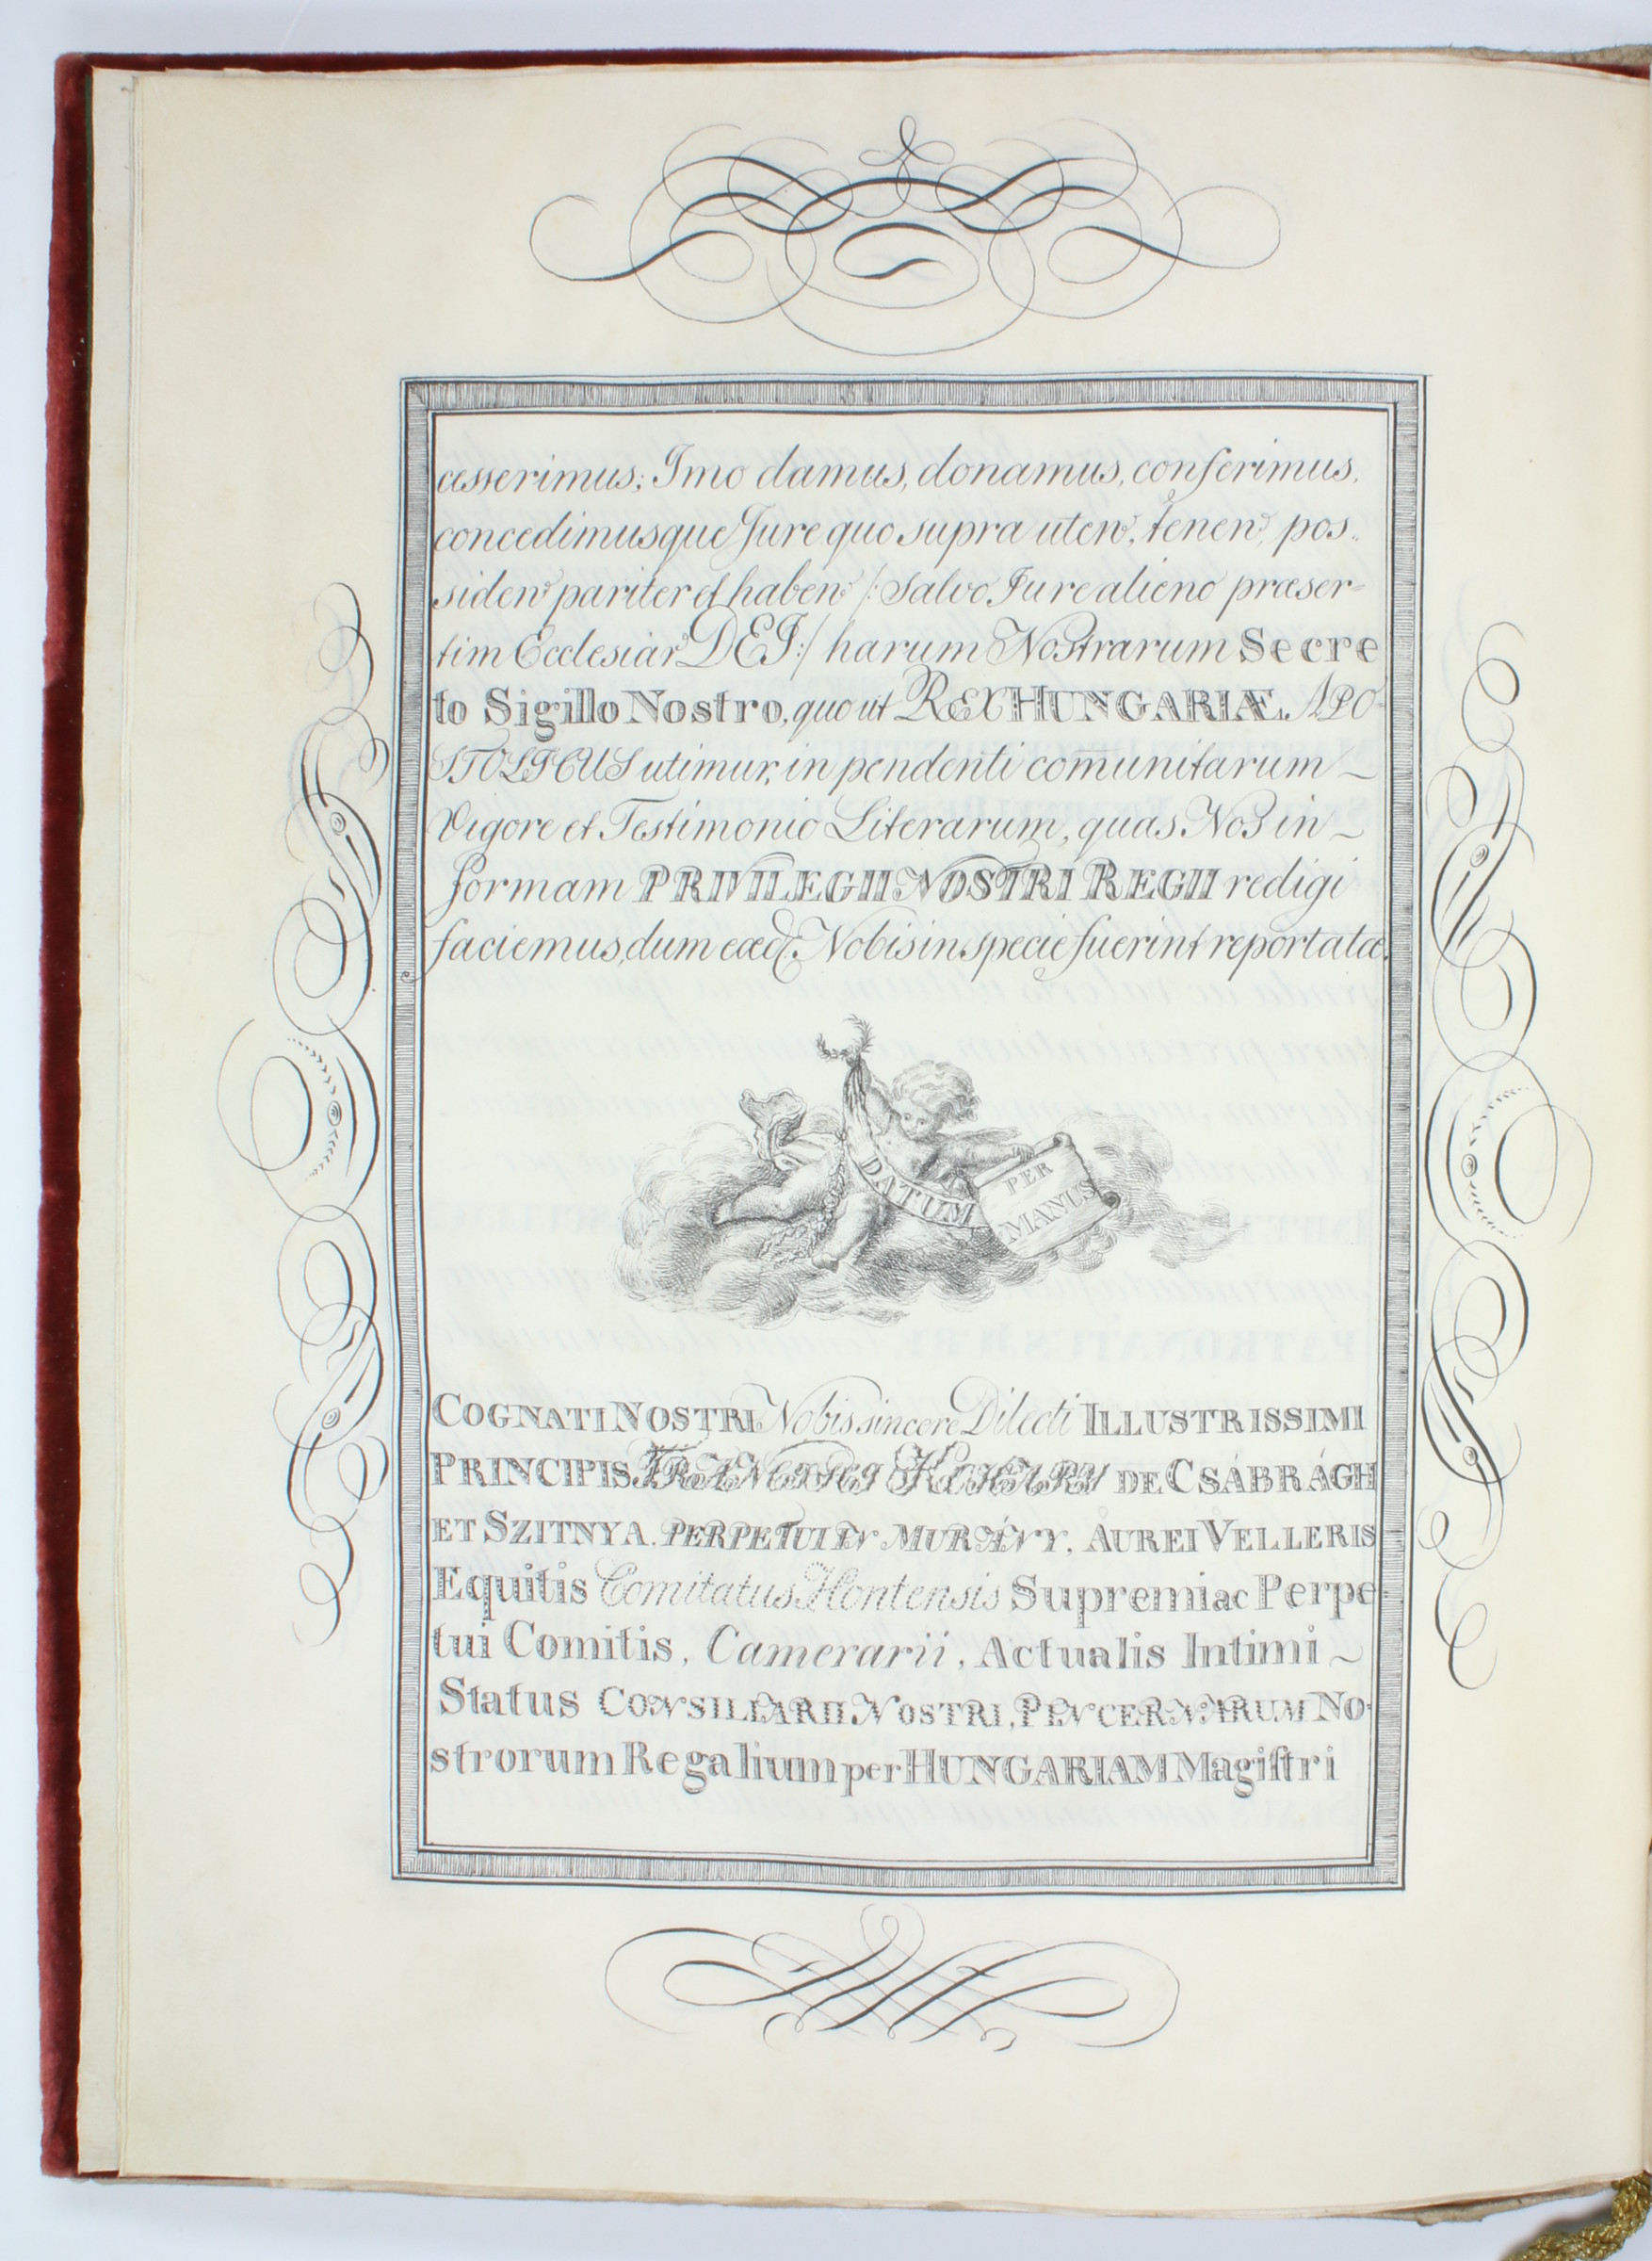 cesserimus; Imo damus, donamus, conferimus,
concedimusque Jure quo supra uten', tenen', pos-
siden' pariter et haben' /: Salvo Jure alieno præser-
tim Ecclesiar' DEI :/ harum Nostrarum Secre
to Sigillo Nostro, quo ut REX HUNGARIÆ APO-
STOLICUS utimur, in pendenti com̄unitarum
Vigore et Testimonio Literarum, quas Nos in
formam PRIVILEGII NOSTRI REGII redigi
faciemus, dum eæd. Nobis in specie fuerint reportatæ.
DATUM
PER
MANUS
COGNATI NOSTRI Nobis sincere Dilecti ILLUSTRISSIMI
PRINCIPIS FRANCISCI KOHÁRY DE CSÁBRÁGH
ET SZITNYA, PERPETUI IN MURÁNY, AUREI VELLERIS
Equitis Comitatus Hontensis Supremi ac Perpe-
tui Comitis, Camerarii, Actualis Intimi
Status CONSILIARII NOSTRI, PINCERNARUM No-
strorum Regalium per HUNGARIAM Magistri